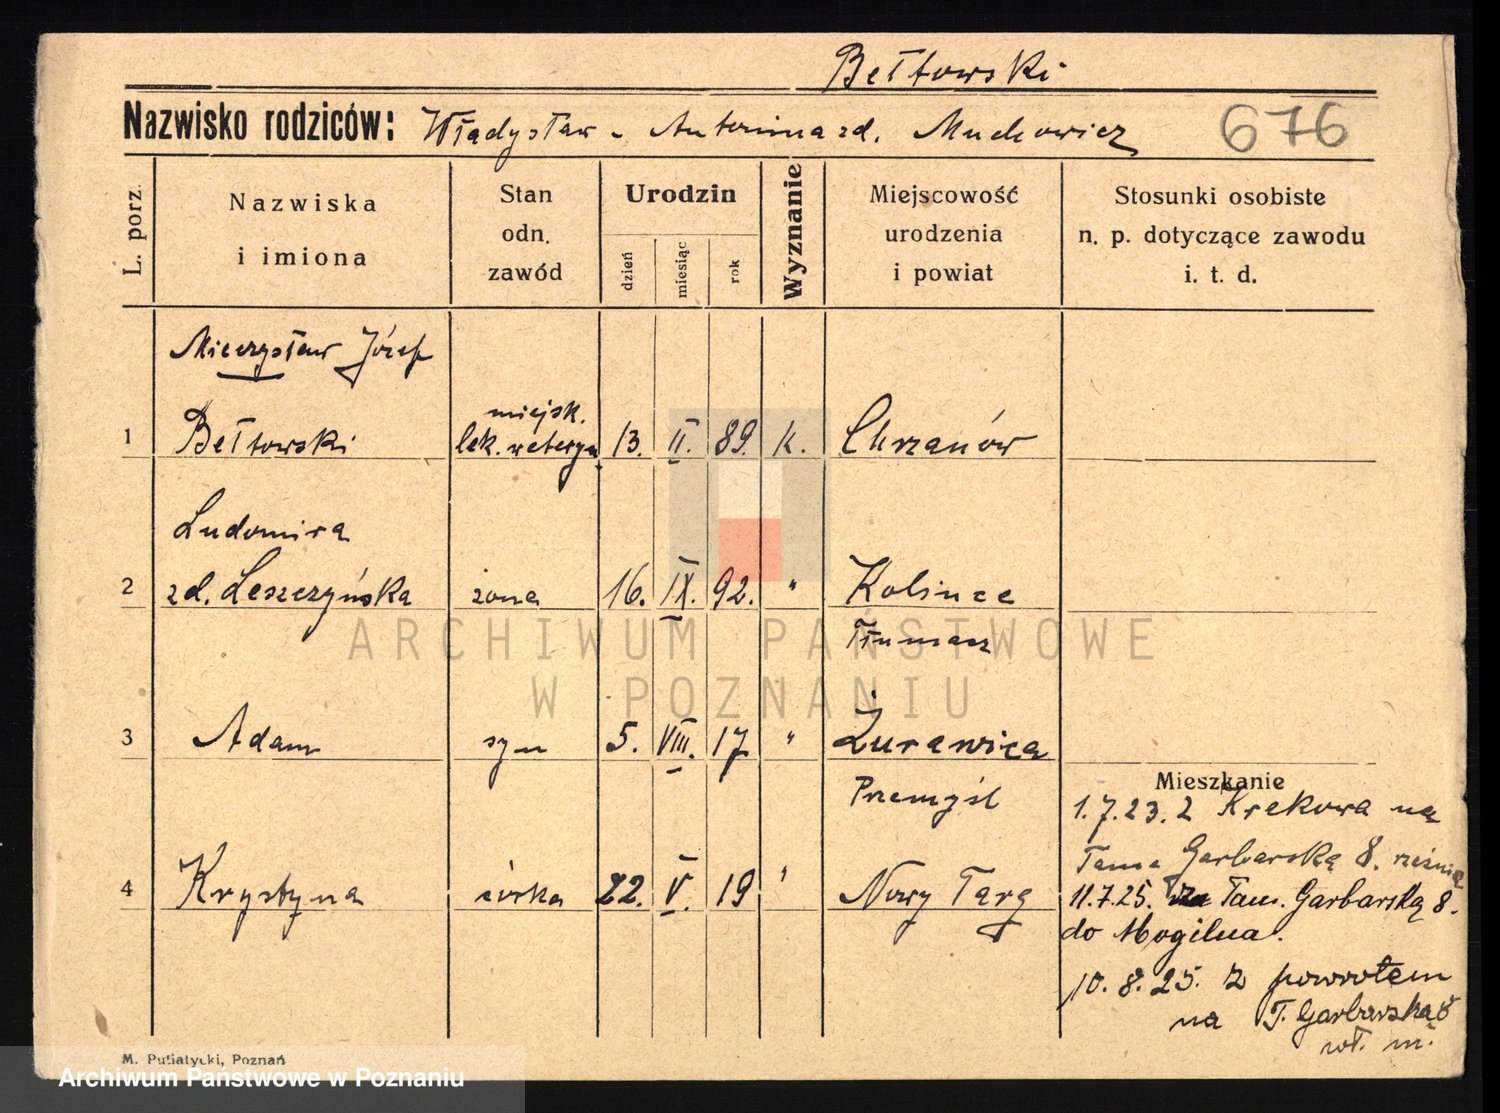 Bełtowski
Nazwisko rodziców: Władysław - Antonina zd. Muchowicz
676
L. porz.
Nazwiska
i imiona
Stan
odn.
zawód
Urodzin
dzień
miesiąc
rok
Wyznanie
Miejscowość
urodzenia
i powiat
Stosunki osobiste
n. p. dotyczące zawodu
i. t. d.
Mieczysław Józef
miejsk.
1 Bełtowski lek. weteryn. 13. II. 89. k. Chrzanów
Ludomira
2 zd. Leszczyńska żona 16. IX. 92. " Kolince
Tłumacz
3 Adam syn 5. VIII. 17 " Żurawica
Przemyśl
Mieszkanie
1.7.23. z Krakowa na
Tama Garbarską 8. rzeźnia
4 Krystyna córka 22. V. 19 " Nowy Targ
11.7.25. Tam. Garbarską 8.
do Mogilna.
10.8.25. z powrotem
na T. Garbarską 8
wł. m.
M. Putiatycki, Poznań
ARCHIWUM PAŃSTWOWE
W POZNANIU
Archiwum Państwowe w Poznaniu